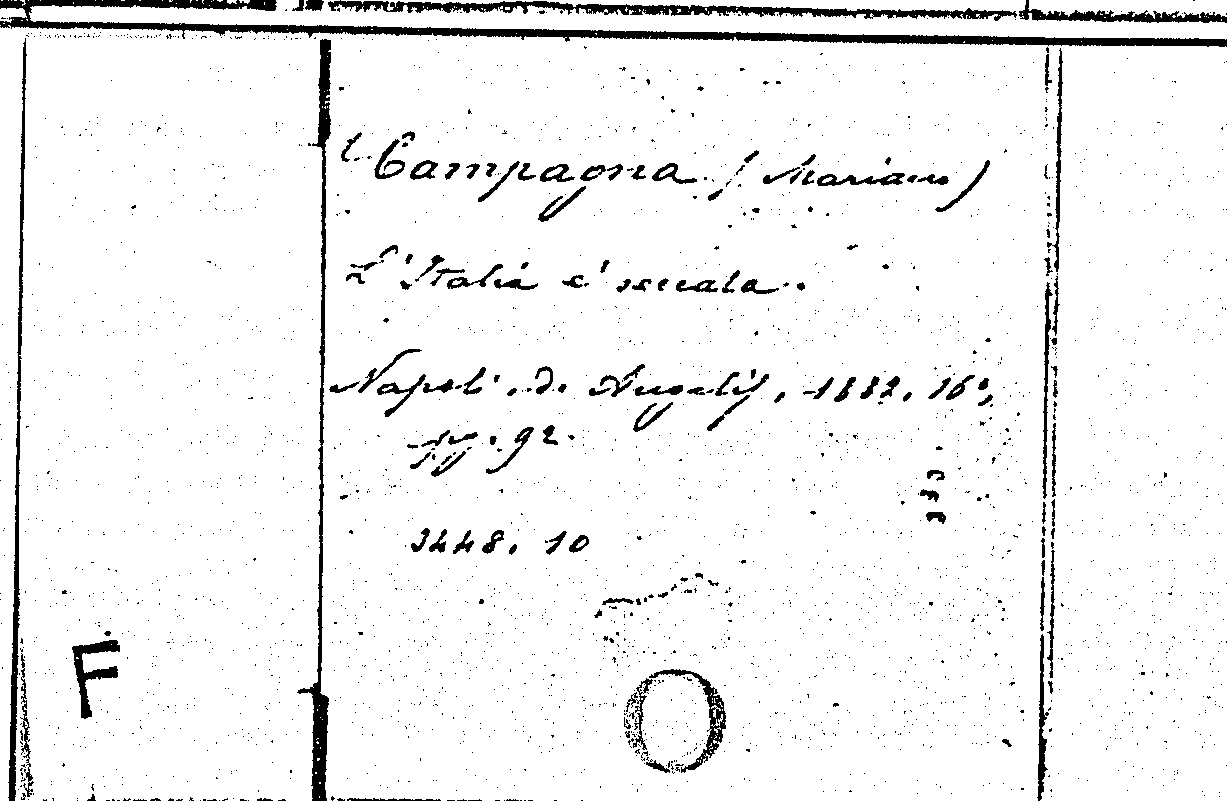 Campagna (Mariano)
L'Italia è seccata.
Napoli. de Angelis, 1882. 16°,
pg. 92.
3448. 10
F